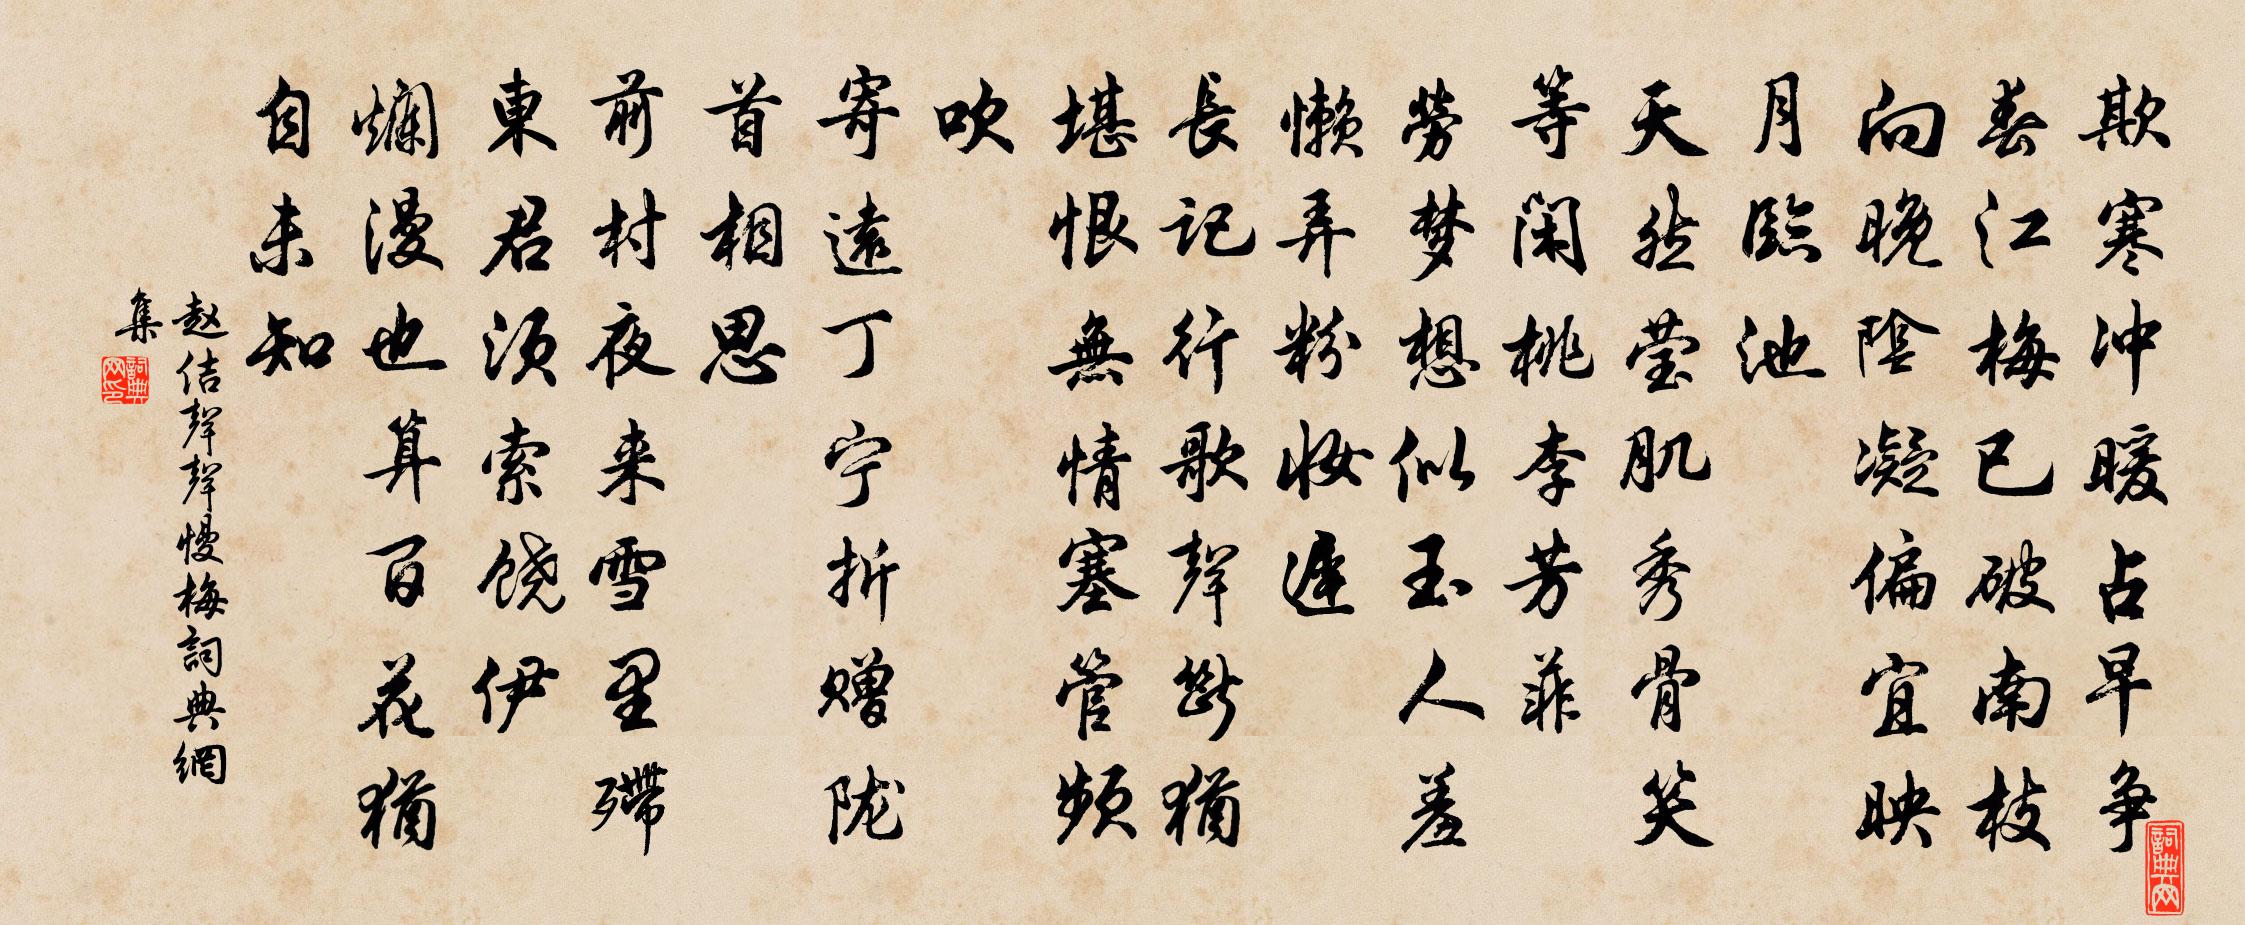 欺寒冲暖占早争
春江梅已破南枝
向晚陰凝偏宜映
月臨池
天然莹肌秀骨笑
等闲桃李芳菲
劳梦想似玉人羞
懒弄粉妆遲
長记行歌聲斷猶
堪恨無情塞管频
吹
寄遠丁宁折赠陇
首相思
前村夜来雪里殢
東君须索饶伊
爛漫也算百花猶
自未知
赵佶聲聲慢梅詞典網
集
詞典网印
詞典网